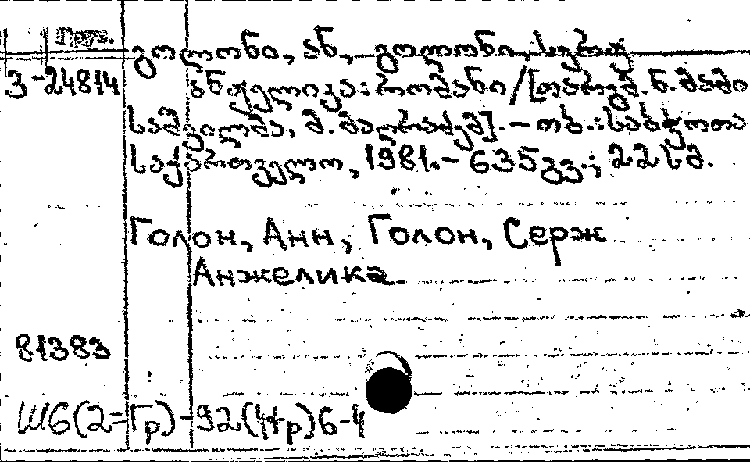 გოლონი, ან, გოლონი, სერჟ
3-24814 ანჟელიკა: რომანი/[თარგმ. ნ. მამი
საშვილმა, მ. ბაღრაძემ].-თბ.: საბჭოთა
საქართველო, 1981.- 635გვ.; 22სმ.
Голон, Анн, Голон, Серж
Анжелика
81383
Ш6(2=Гр)-92(4Фр)6-4